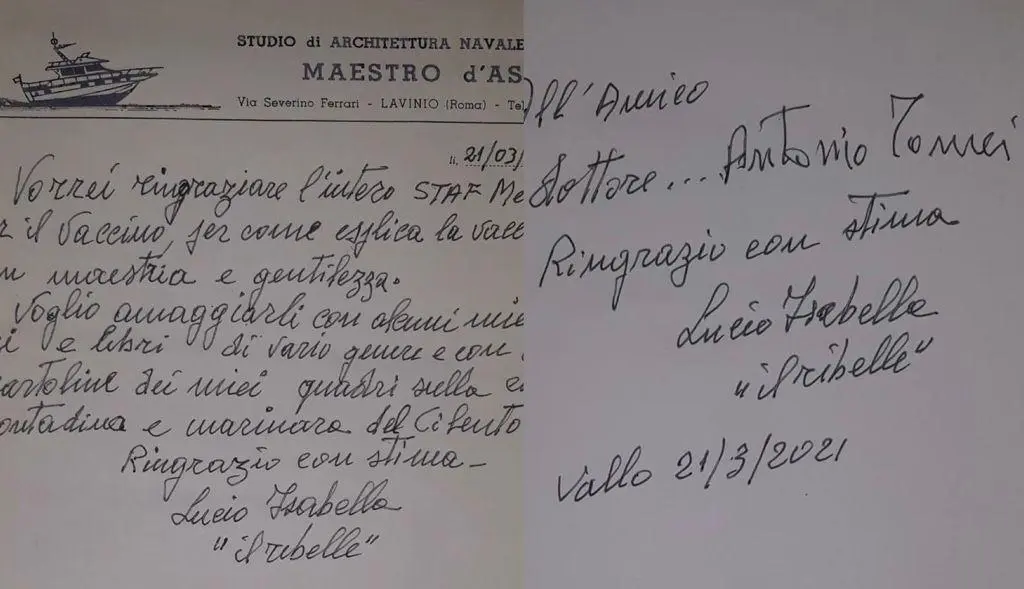 STUDIO di ARCHITETTURA NAVALE
MAESTRO d'AS
Via Severino Ferrari - LAVINIO (Roma) - Tel
li, 21/03/
Vorrei ringraziare l'intero STAF Me
r il vaccino, per come esplica la vacc
n maestria e gentilezza.
Voglio amaggiarli con alcuni mie
i e libri di vario genere e con
artoline dei miei quadri sulla c
ontadina e marinara del Cilento
Ringrazio con stima -
Lucio Isabella
"il ribelle"
All'Amico
Dottore... Antonio Tomei
Ringrazio con stima
Lucio Isabella
"il ribelle"
Vallo 21/3/2021